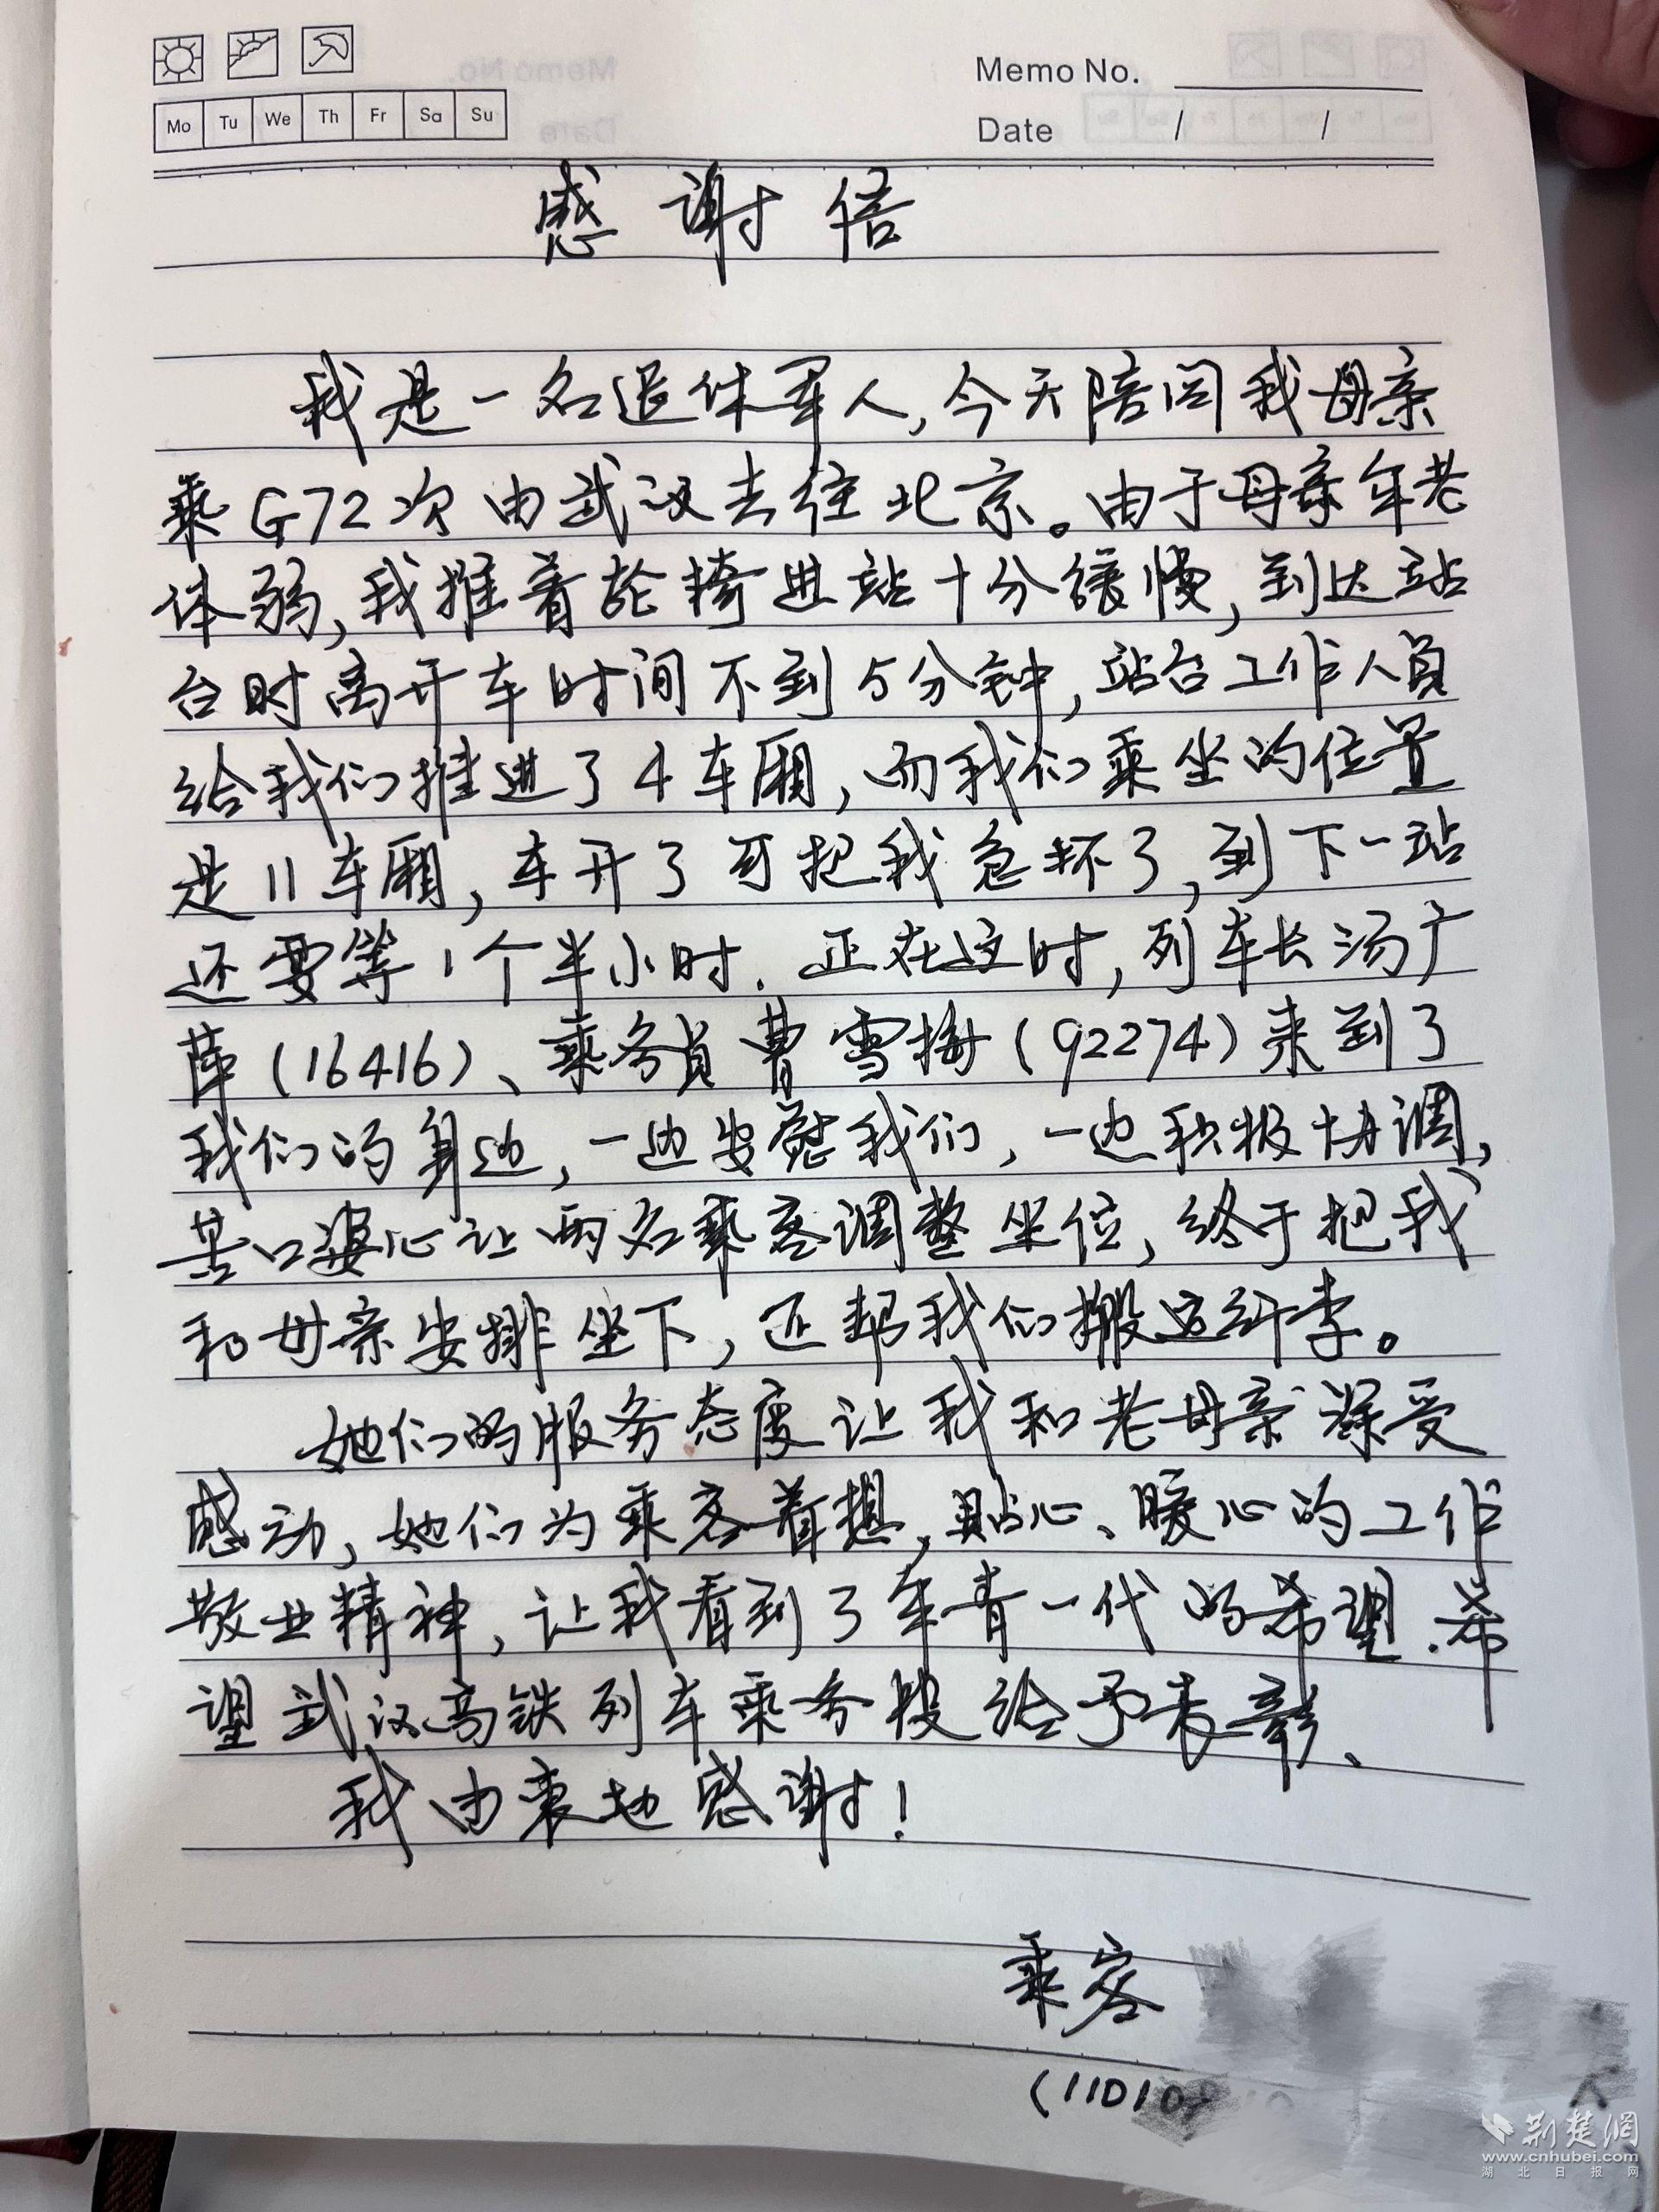 Memo No.
Mo Tu We Th Fr Sa Su
Date / /
感谢信
我是一名退休军人,今天陪同我母亲
乘G72次由武汉去往北京。由于母亲年老
体弱,我推着轮椅进站十分缓慢,到达站
台时离开车时间不到5分钟,站台工作人员
给我们推进了4车厢,而我们乘坐的位置
是11车厢,车开了可把我急坏了,到下一站
还要等1个半小时.正在这时,列车长汤广
萍(16416)、乘务员曹雪梅(92274)来到了
我们的身边,一边安慰我们,一边积极协调,
苦口婆心让两名乘客调整坐位,终于把我
和母亲安排坐下,还帮我们搬运行李。
她们的服务态度让我和老母亲深受
感动,她们为乘客着想,贴心、暖心的工作
敬业精神,让我看到了年青一代的希望.希
望武汉高铁列车乘务段给予表彰、
我由衷地感谢!
乘客
(11D10
荆楚网
www.cnhubei.com
湖北日报网